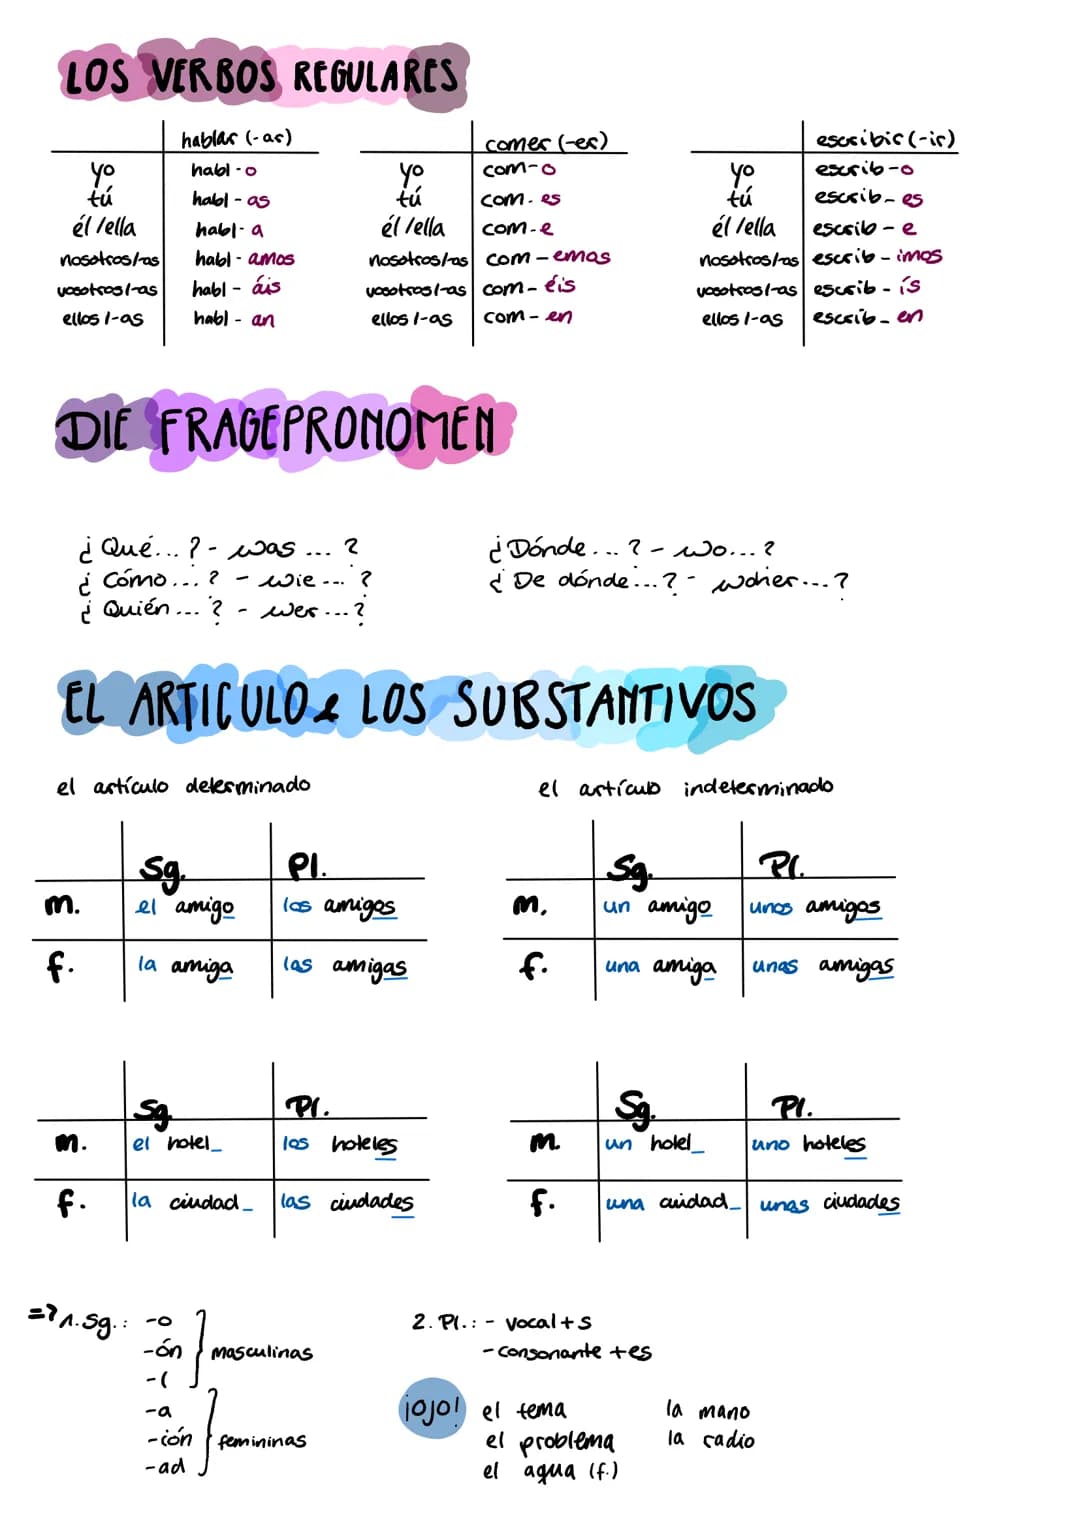 LOS VERBOS REGULARES
hablar (-ar) comer (-er) escribir (-ir)
yo habl - o yo com - o yo escrib - o
tú habl - as tú com - es tú escrib - es
él /ella habl - a él /ella com - e él /ella escrib - e
nosotros/-as habl - amos nosotros/-as com - emos nosotros/-as escrib - imos
vosotros/-as habl - áis vosotros/-as com - éis vosotros/-as escrib - ís
ellos /-as habl - an ellos /-as com - en ellos /-as escrib - en
DIE FRAGEPRONOMEN
¿ Qué... ? - was ... ? ¿ Dónde ... ? - wo...?
¿ Cómo ... ? - wie ... ? ¿ De dónde ...? - woher ...?
¿ Quién ... ? - wer ...?
EL ARTICULO & LOS SUBSTANTIVOS
el artículo determinado el artículo indeterminado
Sg. Pl. Sg. Pl.
m. el amigo los amigos m. un amigo unos amigos
f. la amiga las amigas f. una amiga unas amigas
Sg. Pl. Sg. Pl.
m. el hotel_ los hoteles m. un hotel_ uno hoteles
f. la ciudad_ las ciudades f. una ciudad_ unas ciudades
=> 1. Sg.: -o 2. Pl.: - vocal + s
-ón masculinas - consonante + es
-l
-a ¡ojo! el tema la mano
-ión femininas el problema la radio
-ad el agua (f.)